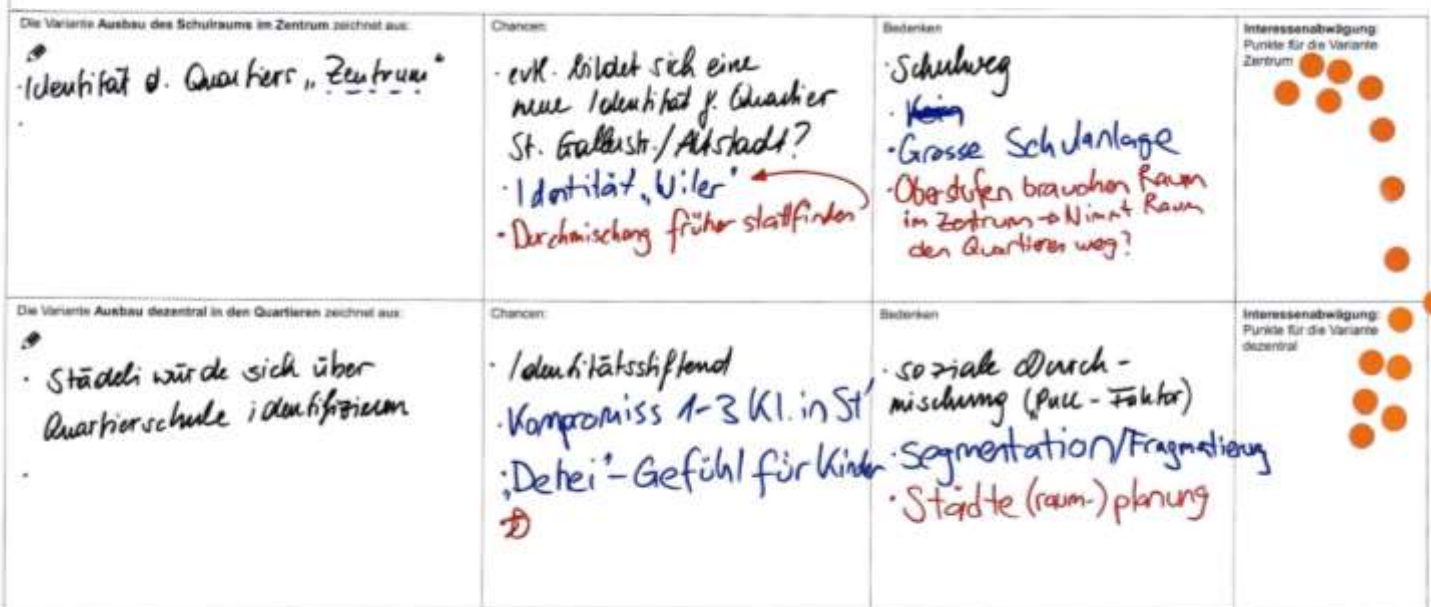 Die Variante Ausbau des Schulraums im Zentrum zeichnet aus:
· Identität d. Quartiers „Zentrum"
Chancen:
· evtl. bildet sich eine
neue Identität f. Quartier
St. Gallerstr./Altstadt?
· Identität „Wiler"
· Durchmischung früher stattfinden
Bedenken
· Schulweg
· Kein
· Grosse Schulanlage
· Oberstufen brauchen Raum
im Zentrum → Nimmt Raum
den Quartieren weg?
Interessenabwägung:
Punkte für die Variante
Zentrum
Die Variante Ausbau dezentral in den Quartieren zeichnet aus:
· Städeli würde sich über
Quartierschule identifizieren
Chancen:
· Identitätsstiftend
· Kompromiss 1-3 Kl. in St'
· „Dehei"-Gefühl für Kinder
Bedenken
· soziale Durch-
mischung („Pull-Faktor)
· Segmentation/Fragmatierung
· Städte (raum-) planung
Interessenabwägung:
Punkte für die Variante
dezentral